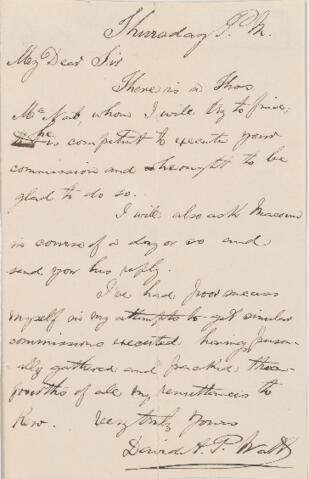 Thursday P.M.
My Dear Sir
There is a Thos.
McNab, whom I will try to find;
he is competent to execute your
commission and he ought to be
glad to do so.
I will also ask Macoun
in course of a day or so and
send you his reply.
I've had poor success
myself in my attempts to get similar
commissions executed having person-
ally gathered and packed three
fourths of all my remittances to
Kew. Very truly yours
David A. P. Watt